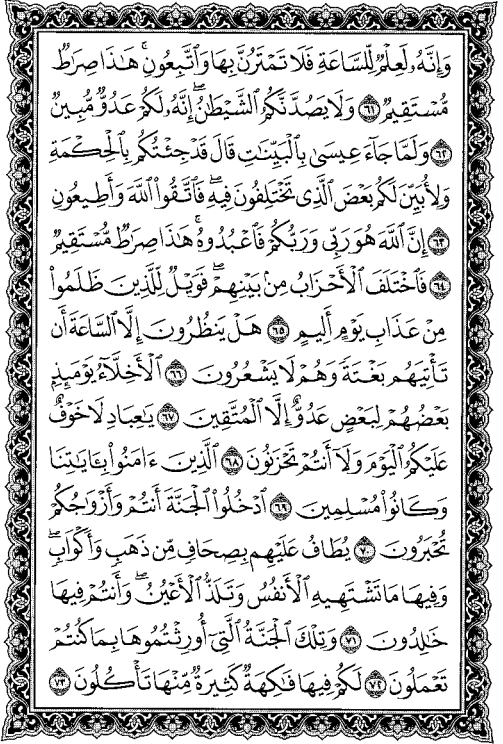 وَإِنَّهُۥ لَعِلْمٌ لِّلسَّاعَةِ فَلَا تَمْتَرُنَّ بِهَا وَٱتَّبِعُونِ ۚ هَـٰذَا صِرَٰطٌ
مُّسْتَقِيمٌ ٦١ وَلَا يَصُدَّنَّكُمُ ٱلشَّيْطَـٰنُ ۖ إِنَّهُۥ لَكُمْ عَدُوٌّ مُّبِينٌ
٦٢ وَلَمَّا جَآءَ عِيسَىٰ بِٱلْبَيِّنَـٰتِ قَالَ قَدْ جِئْتُكُم بِٱلْحِكْمَةِ
وَلِأُبَيِّنَ لَكُم بَعْضَ ٱلَّذِى تَخْتَلِفُونَ فِيهِ ۖ فَٱتَّقُوا۟ ٱللَّهَ وَأَطِيعُونِ
٦٣ إِنَّ ٱللَّهَ هُوَ رَبِّى وَرَبُّكُمْ فَٱعْبُدُوهُ ۚ هَـٰذَا صِرَٰطٌ مُّسْتَقِيمٌ
٦٤ فَٱخْتَلَفَ ٱلْأَحْزَابُ مِنۢ بَيْنِهِمْ ۖ فَوَيْلٌ لِّلَّذِينَ ظَلَمُوا۟
مِنْ عَذَابِ يَوْمٍ أَلِيمٍ ٦٥ هَلْ يَنظُرُونَ إِلَّا ٱلسَّاعَةَ أَن
تَأْتِيَهُم بَغْتَةً وَهُمْ لَا يَشْعُرُونَ ٦٦ ٱلْأَخِلَّآءُ يَوْمَئِذٍۭ
بَعْضُهُمْ لِبَعْضٍ عَدُوٌّ إِلَّا ٱلْمُتَّقِينَ ٦٧ يَـٰعِبَادِ لَا خَوْفٌ
عَلَيْكُمُ ٱلْيَوْمَ وَلَآ أَنتُمْ تَحْزَنُونَ ٦٨ ٱلَّذِينَ ءَامَنُوا۟ بِـَٔايَـٰتِنَا
وَكَانُوا۟ مُسْلِمِينَ ٦٩ ٱدْخُلُوا۟ ٱلْجَنَّةَ أَنتُمْ وَأَزْوَٰجُكُمْ
تُحْبَرُونَ ٧٠ يُطَافُ عَلَيْهِم بِصِحَافٍ مِّن ذَهَبٍ وَأَكْوَابٍ ۖ
وَفِيهَا مَا تَشْتَهِيهِ ٱلْأَنفُسُ وَتَلَذُّ ٱلْأَعْيُنُ ۖ وَأَنتُمْ فِيهَا
خَـٰلِدُونَ ٧١ وَتِلْكَ ٱلْجَنَّةُ ٱلَّتِىٓ أُورِثْتُمُوهَا بِمَا كُنتُمْ
تَعْمَلُونَ ٧٢ لَكُمْ فِيهَا فَـٰكِهَةٌ كَثِيرَةٌ مِّنْهَا تَأْكُلُونَ ٧٣